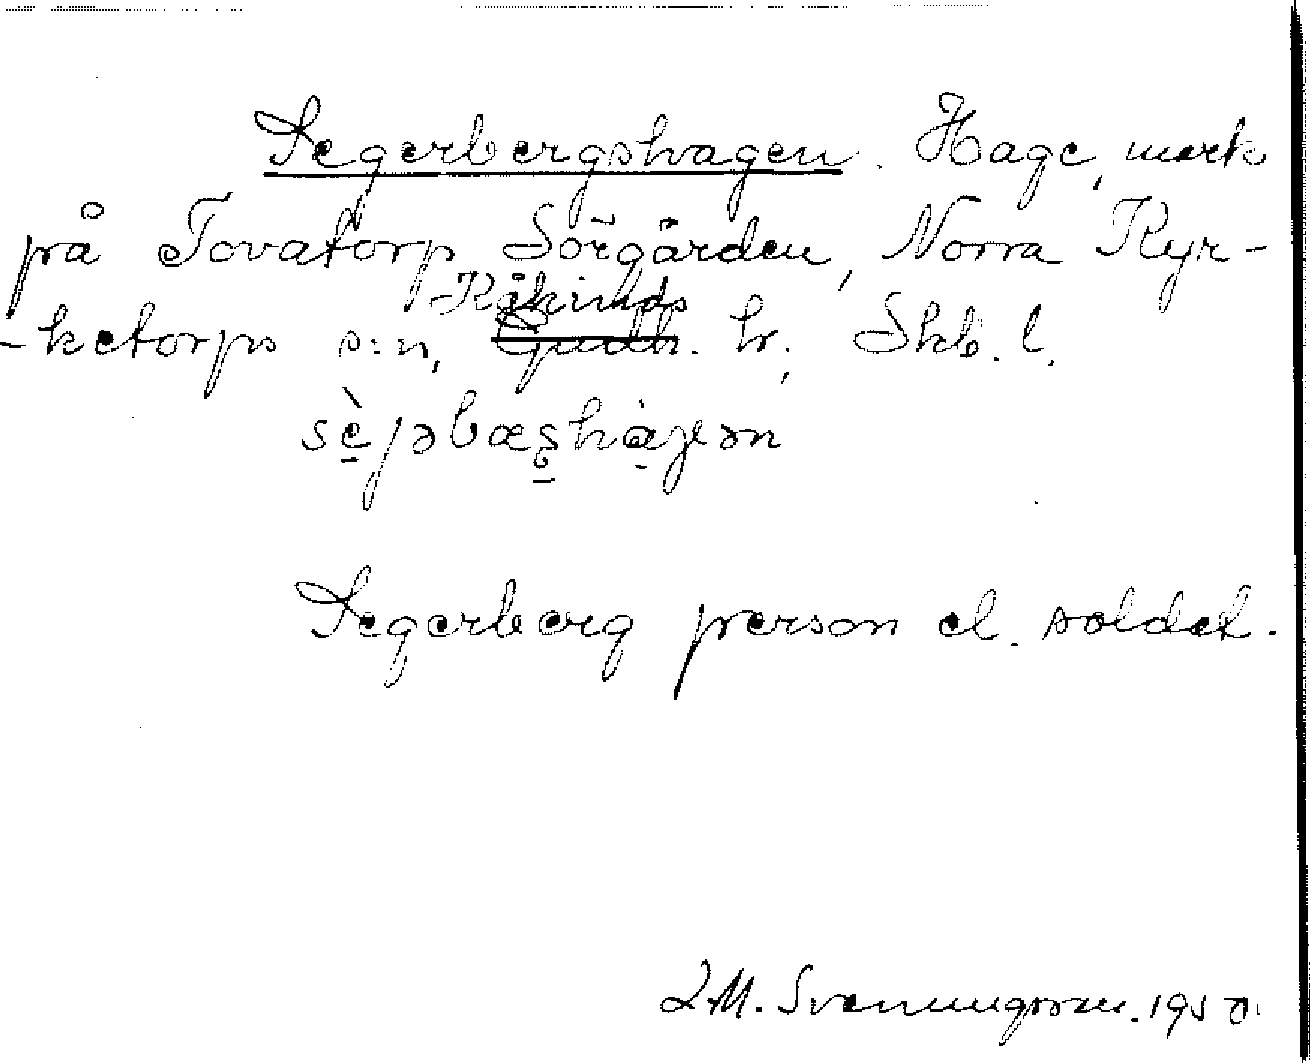 Segerbergshagen. Hage, mark
på Tovatorp Sörgården, Norra Kyr-
Kåkinds
-ketorps s:n, Gudh. hr, Skb. l.
Segerberg person el. soldat.
M. Svenningsson. 1950